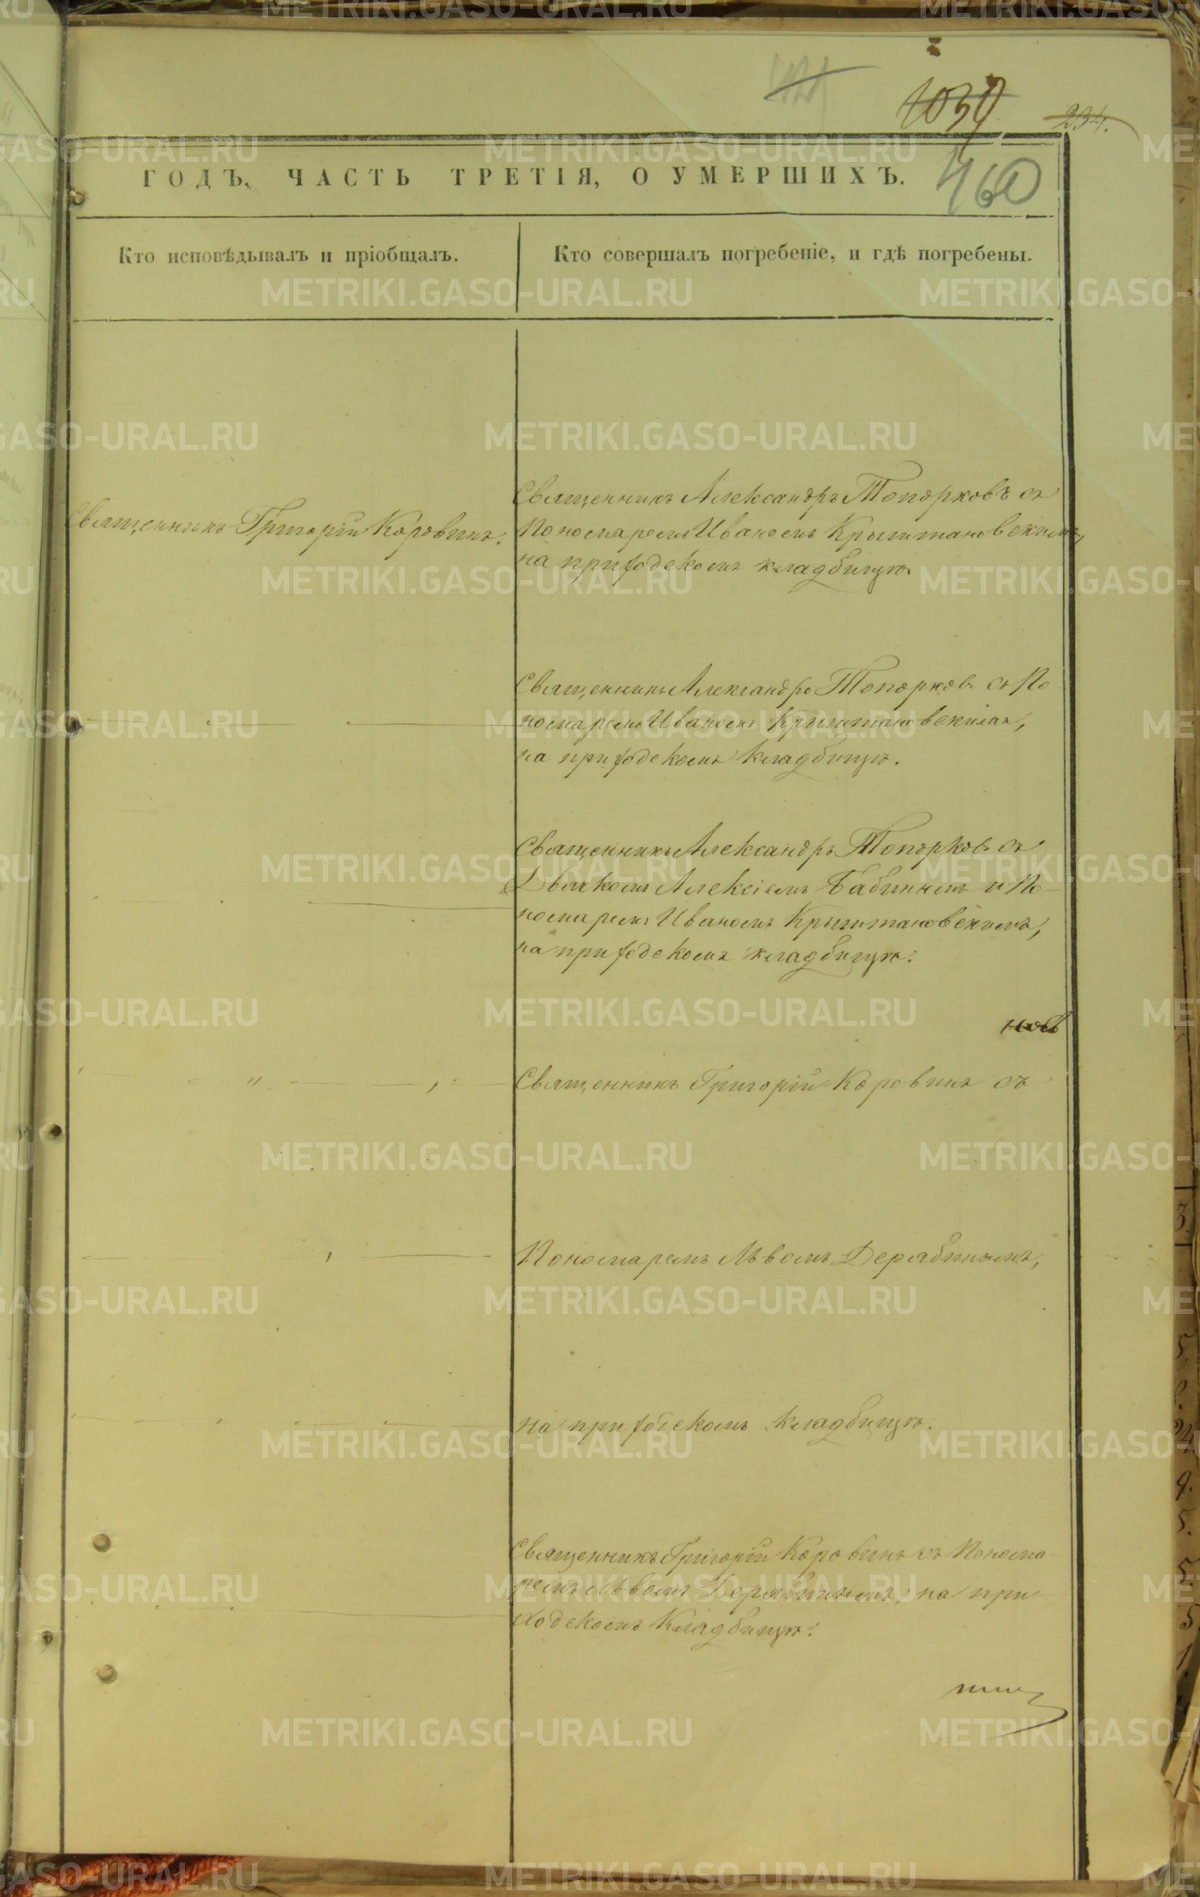 1039
234.
460
ГОДЪ, ЧАСТЬ ТРЕТІЯ, О УМЕРШИХЪ.
Кто исповѣдывалъ и пріобщалъ.
Кто совершалъ погребеніе, и гдѣ погребены.
Священникъ Григорій Коровинъ.
Священникъ Александръ Топорковъ съ
Пономаремъ Иваномъ Крыштановскимъ,
на приходскомъ кладбищѣ
Священникъ Александръ Топорковъ съ По-
номаремъ Иваномъ Крыштановскимъ,
на приходскомъ кладбищѣ.
Священникъ Александръ Топорковъ съ
Дьячкомъ Алексіемъ Бабинымъ и По-
номаремъ Иваномъ Крыштановскимъ,
на приходскомъ кладбищѣ.
Священникъ Григорій Коровинъ съ
Пономаремъ Львомъ Дерябинымъ,
на приходскомъ кладбищѣ.
Священникъ Григорій Коровинъ съ Понома-
ремъ Львомъ Дерябинымъ, на при-
ходскомъ кладбищѣ.
METRIKI.GASO-URAL.RU